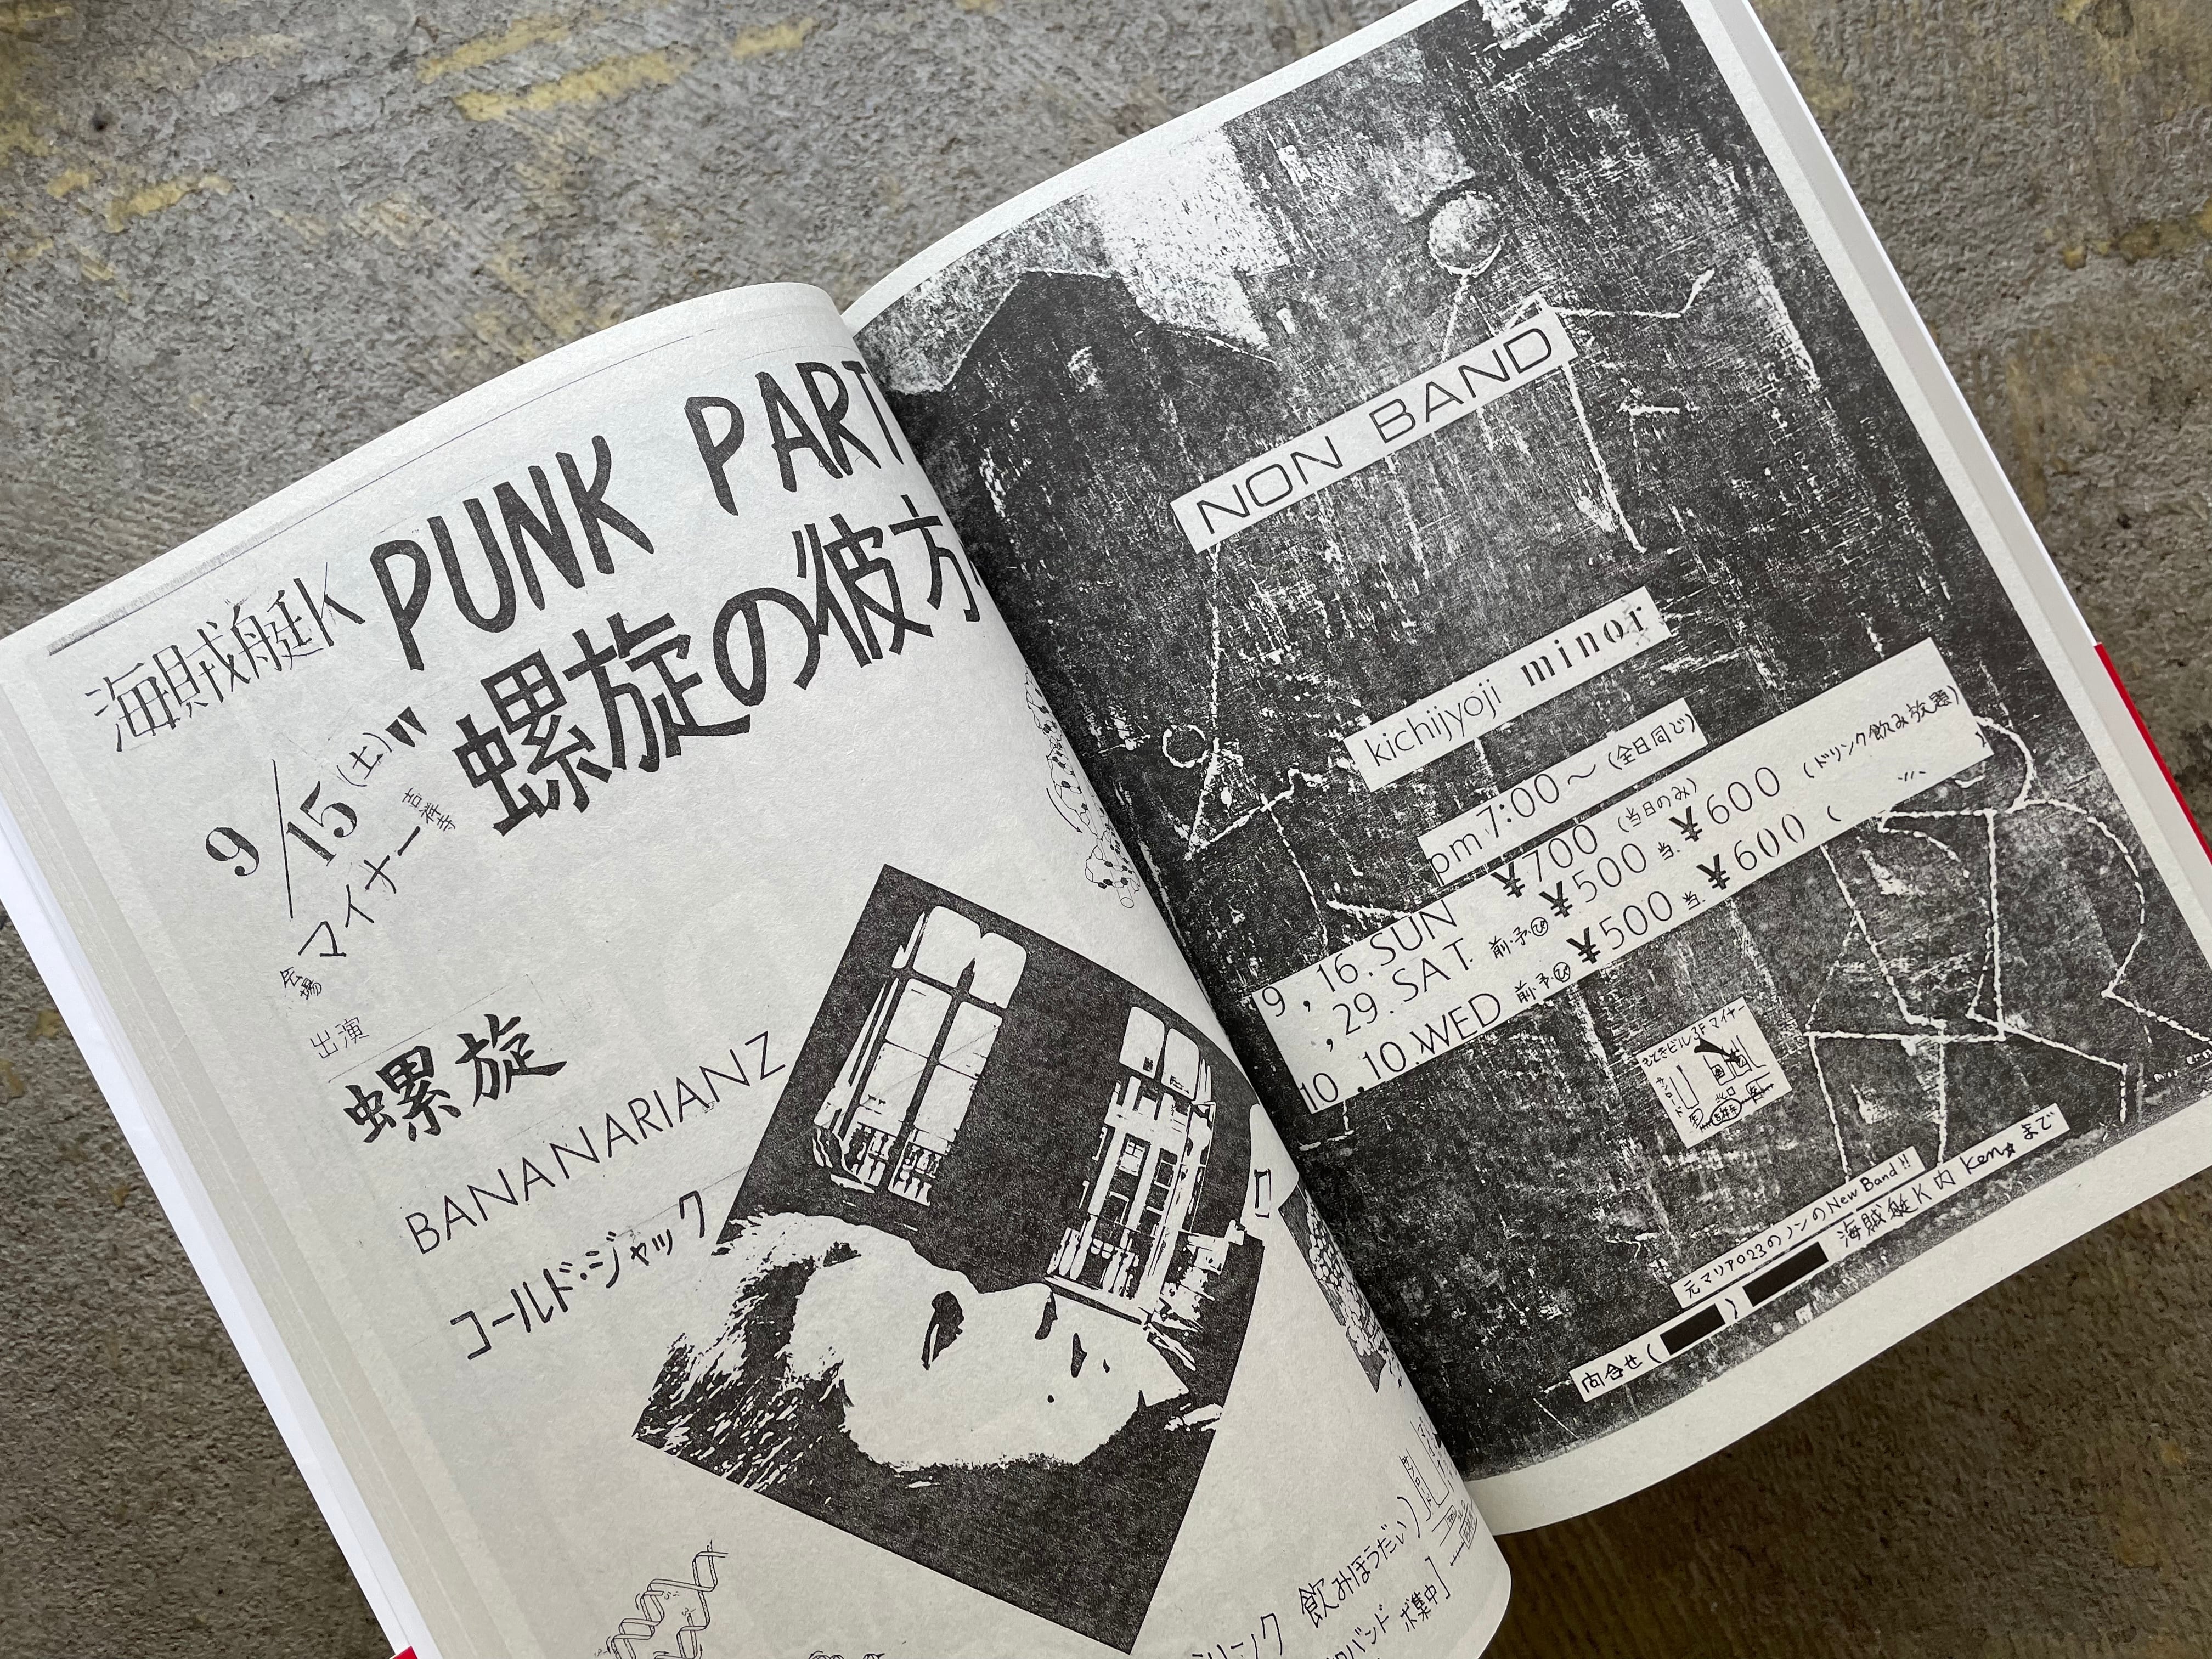 海賊艇K PUNK PART
9/15(土) "螺旋の彼方
会場 マイナー 吉祥寺
出演
螺旋
BANANARIANZ
コールド・ジャック
飲みほうだい)
バンド ボ集中]
NON BAND
kichijyoji minor
pm 7:00〜 (全日同じ)
9, 16. SUN ¥700 (当日のみ)
, 29. SAT. 前・予 ¥500 当. ¥600 (ドリンク飲み放題)
10, 10. WED 前・予 ¥500 当. ¥600 ( 〃 )
もてきビル3Fマイナー
サンロード
北口
元マリア023のノンのNew Band!!
問合せ( ) 海賊艇K内Ken☆まで